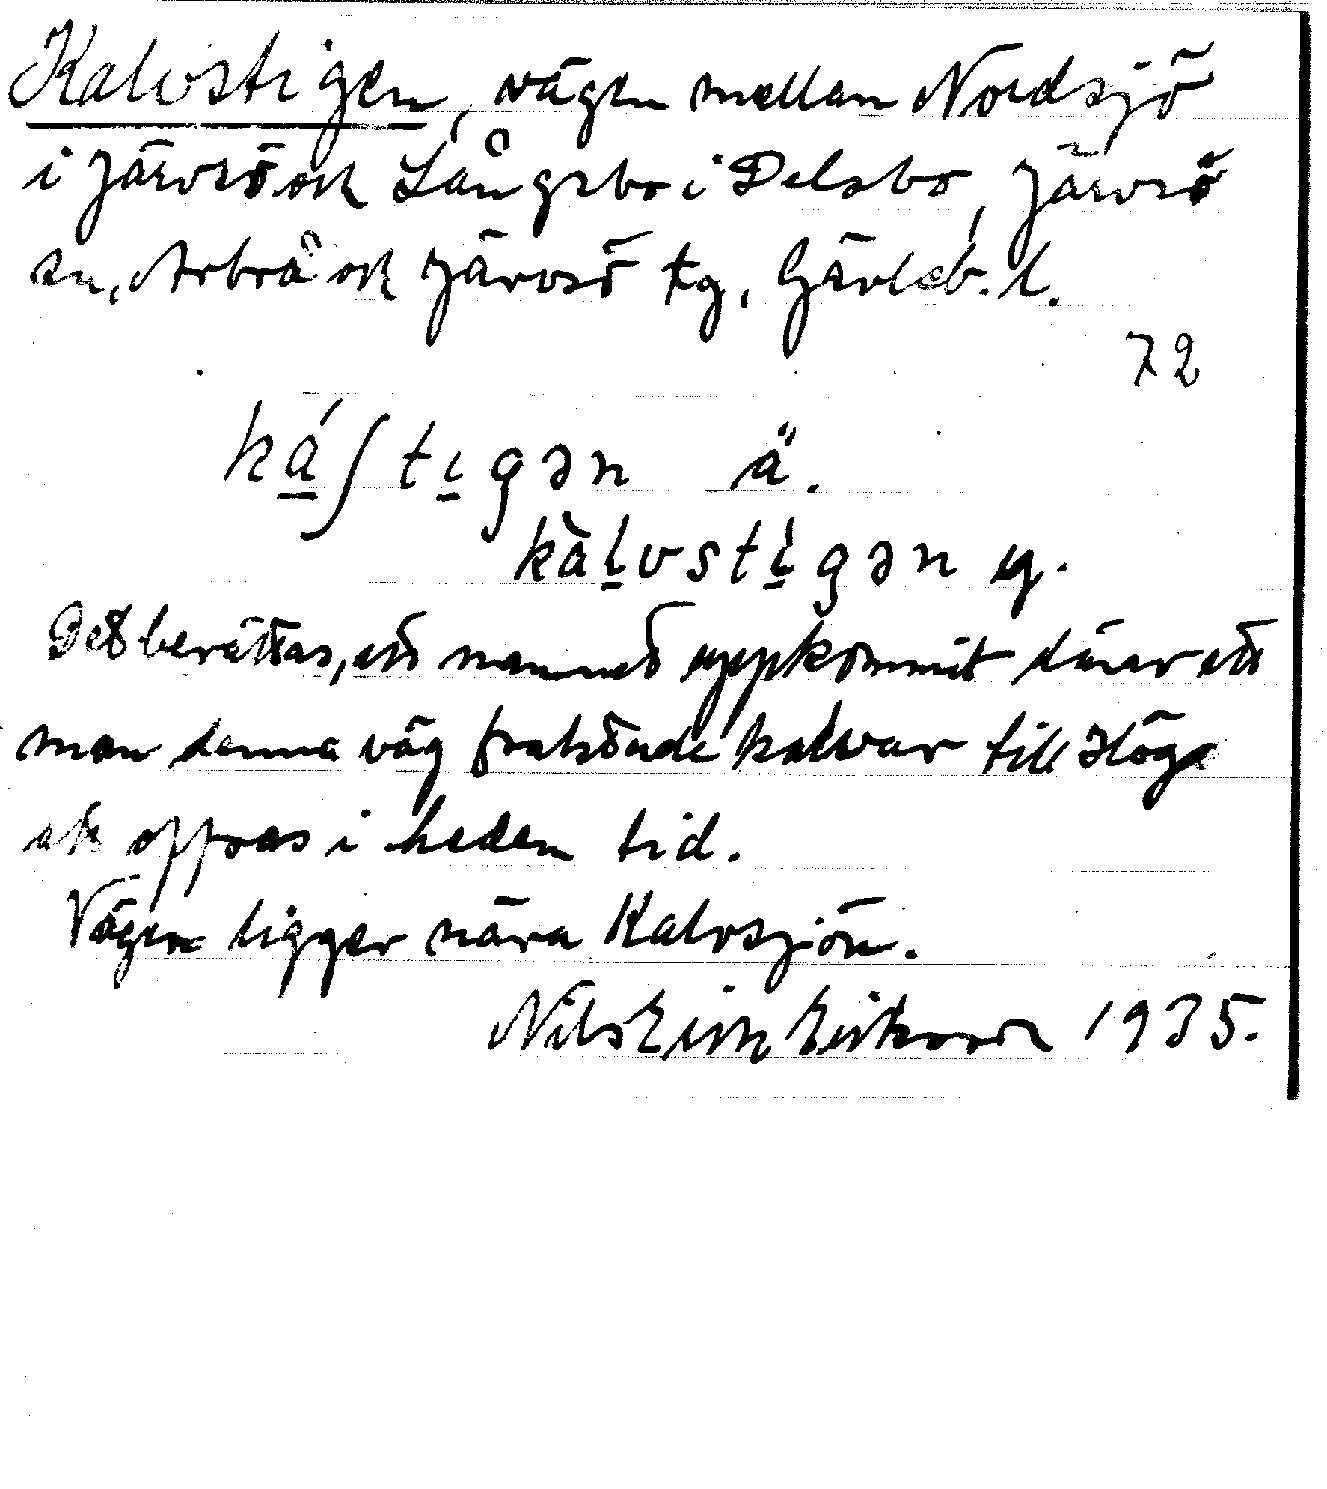 Kalvstigen, vägen mellan Nordsjö
i Järvsö och Långsbo i Delsbo, Järvsö
sn, Arbrå och Järvsö tg, Gävleb. l.
72
káʃtıgən ä.
kàlvstígən y.
Det berättas, att namnet uppkommit därav att
man denna väg fraktade kalvar till Höga
att offras i heden tid.
Vägen ligger nära Kalvsjön.
Nils Erik Eriksson 1935.